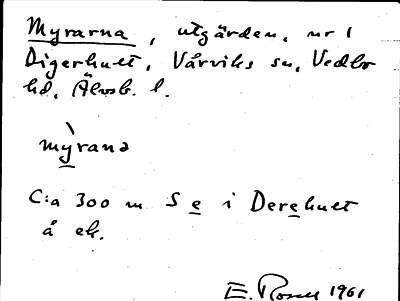 Myrarna, utgården, nr 1
Digerhult, Vårviks sn, Vedbo
hd, Älvsb. l.
mỳrana
C:a 300 m S e i Derehult
å ek.
E. Rosell 1961